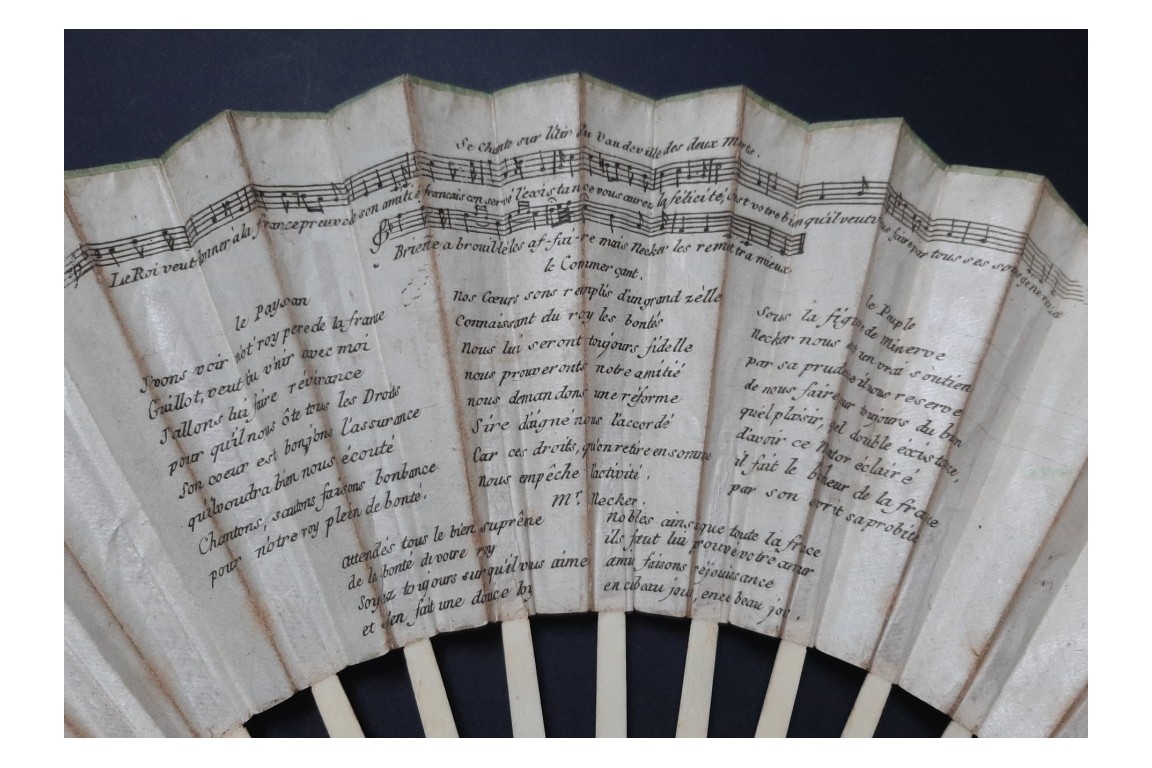 Se chante sur l'air du vaudeville des deux Morts.
Le Roi veut donner à la france preuve de son amitié francais conservé l'existance vous aurez la félicité, c'est votre bien qu'il veut vous faire par tous ses soins genereux
Briene a brouillé les af-fai-re mais Necker les remettra mieux
le Paysan
J'vons voir not' roy pere de la france
Guillot, veut tu v'nir avec moi
J'allons lui faire révérance
pour qu'il nous ôte tous les Droits
Son coeur est bon j'ons l'assurance
qu'il voudra bien nous écouté
Chantons, sautons faisons bonbance
pour notre roy plein de bonté.
le Commerçant.
Nos Cœurs sons remplis d'un grand zèlle
Connaissant du roy les bontés
Nous lui seront toujours fidelle
nous prouveronts notre amitié
nous demandons une réforme
Sire daigné nous l'accordé
Car ces droits, qu'en retire en somme
nous empêche l'activité.
le Peuple
Sous la figure de Minerve
Necker nous est un vrai soutien
par sa prudence il nous reserve
de nous faire sur toujours du bien
quel plaisir, quel double existence,
d'avoir ce Mentor éclairé
il fait le bonheur de la france
par son esprit sa probité
Mr. Necker.
attendés tous le bien suprêne
de la bonté de votre roy
Soyez toujours sur qu'il vous aime
et s'en fait une douce loy
Nobles ainsi que toute la france
ils faut lui prouvé votre amour
amis faisons rejouissance
en ce beau jour, en ce beau jour.